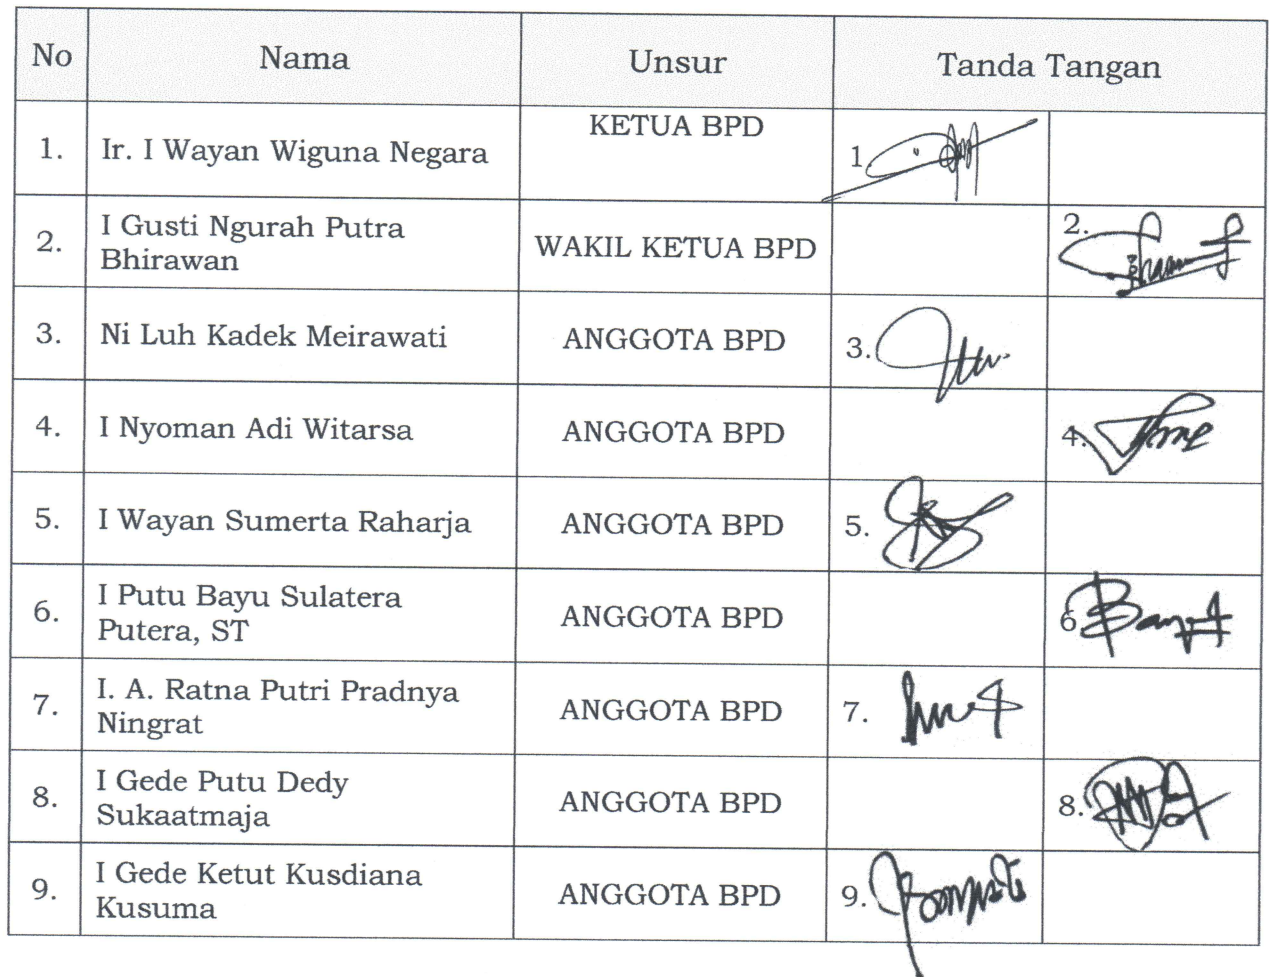 No Nama Unsur Tanda Tangan
1. Ir. I Wayan Wiguna Negara KETUA BPD 1.
2. I Gusti Ngurah Putra
Bhirawan WAKIL KETUA BPD 2.
3. Ni Luh Kadek Meirawati ANGGOTA BPD 3.
4. I Nyoman Adi Witarsa ANGGOTA BPD 4.
5. I Wayan Sumerta Raharja ANGGOTA BPD 5.
6. I Putu Bayu Sulatera
Putera, ST ANGGOTA BPD 6.
7. I. A. Ratna Putri Pradnya
Ningrat ANGGOTA BPD 7.
8. I Gede Putu Dedy
Sukaatmaja ANGGOTA BPD 8.
9. I Gede Ketut Kusdiana
Kusuma ANGGOTA BPD 9.